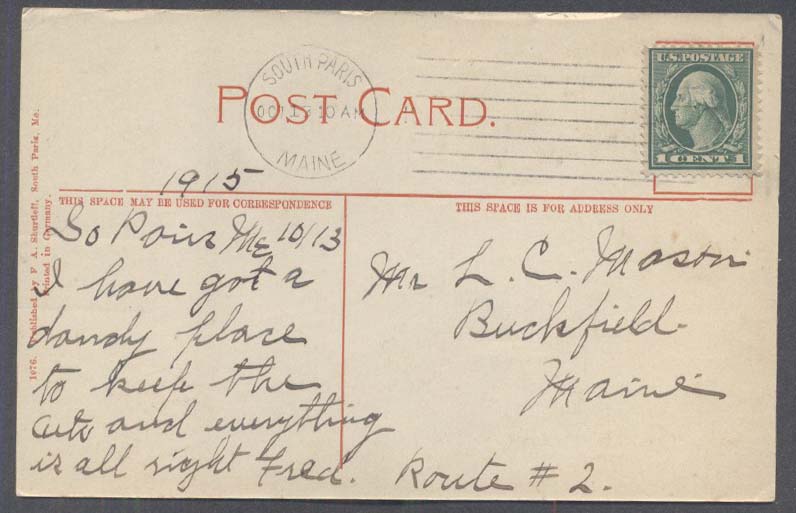 POST CARD.
SOUTH PARIS
OCT 13 10 AM
MAINE
U.S. POSTAGE
1 CENT 1
1915
THIS SPACE MAY BE USED FOR CORRESPONDENCE
THIS SPACE IS FOR ADDRESS ONLY
So Paris Me 10/13
I have got a
dandy place
to keep the
and everything
is all right Fred.
Mr L. C. Mason
Buckfield
Maine
Route # 2.
1076. Published by F. A. Shurtleff, South Paris, Me.
Printed in Germany.